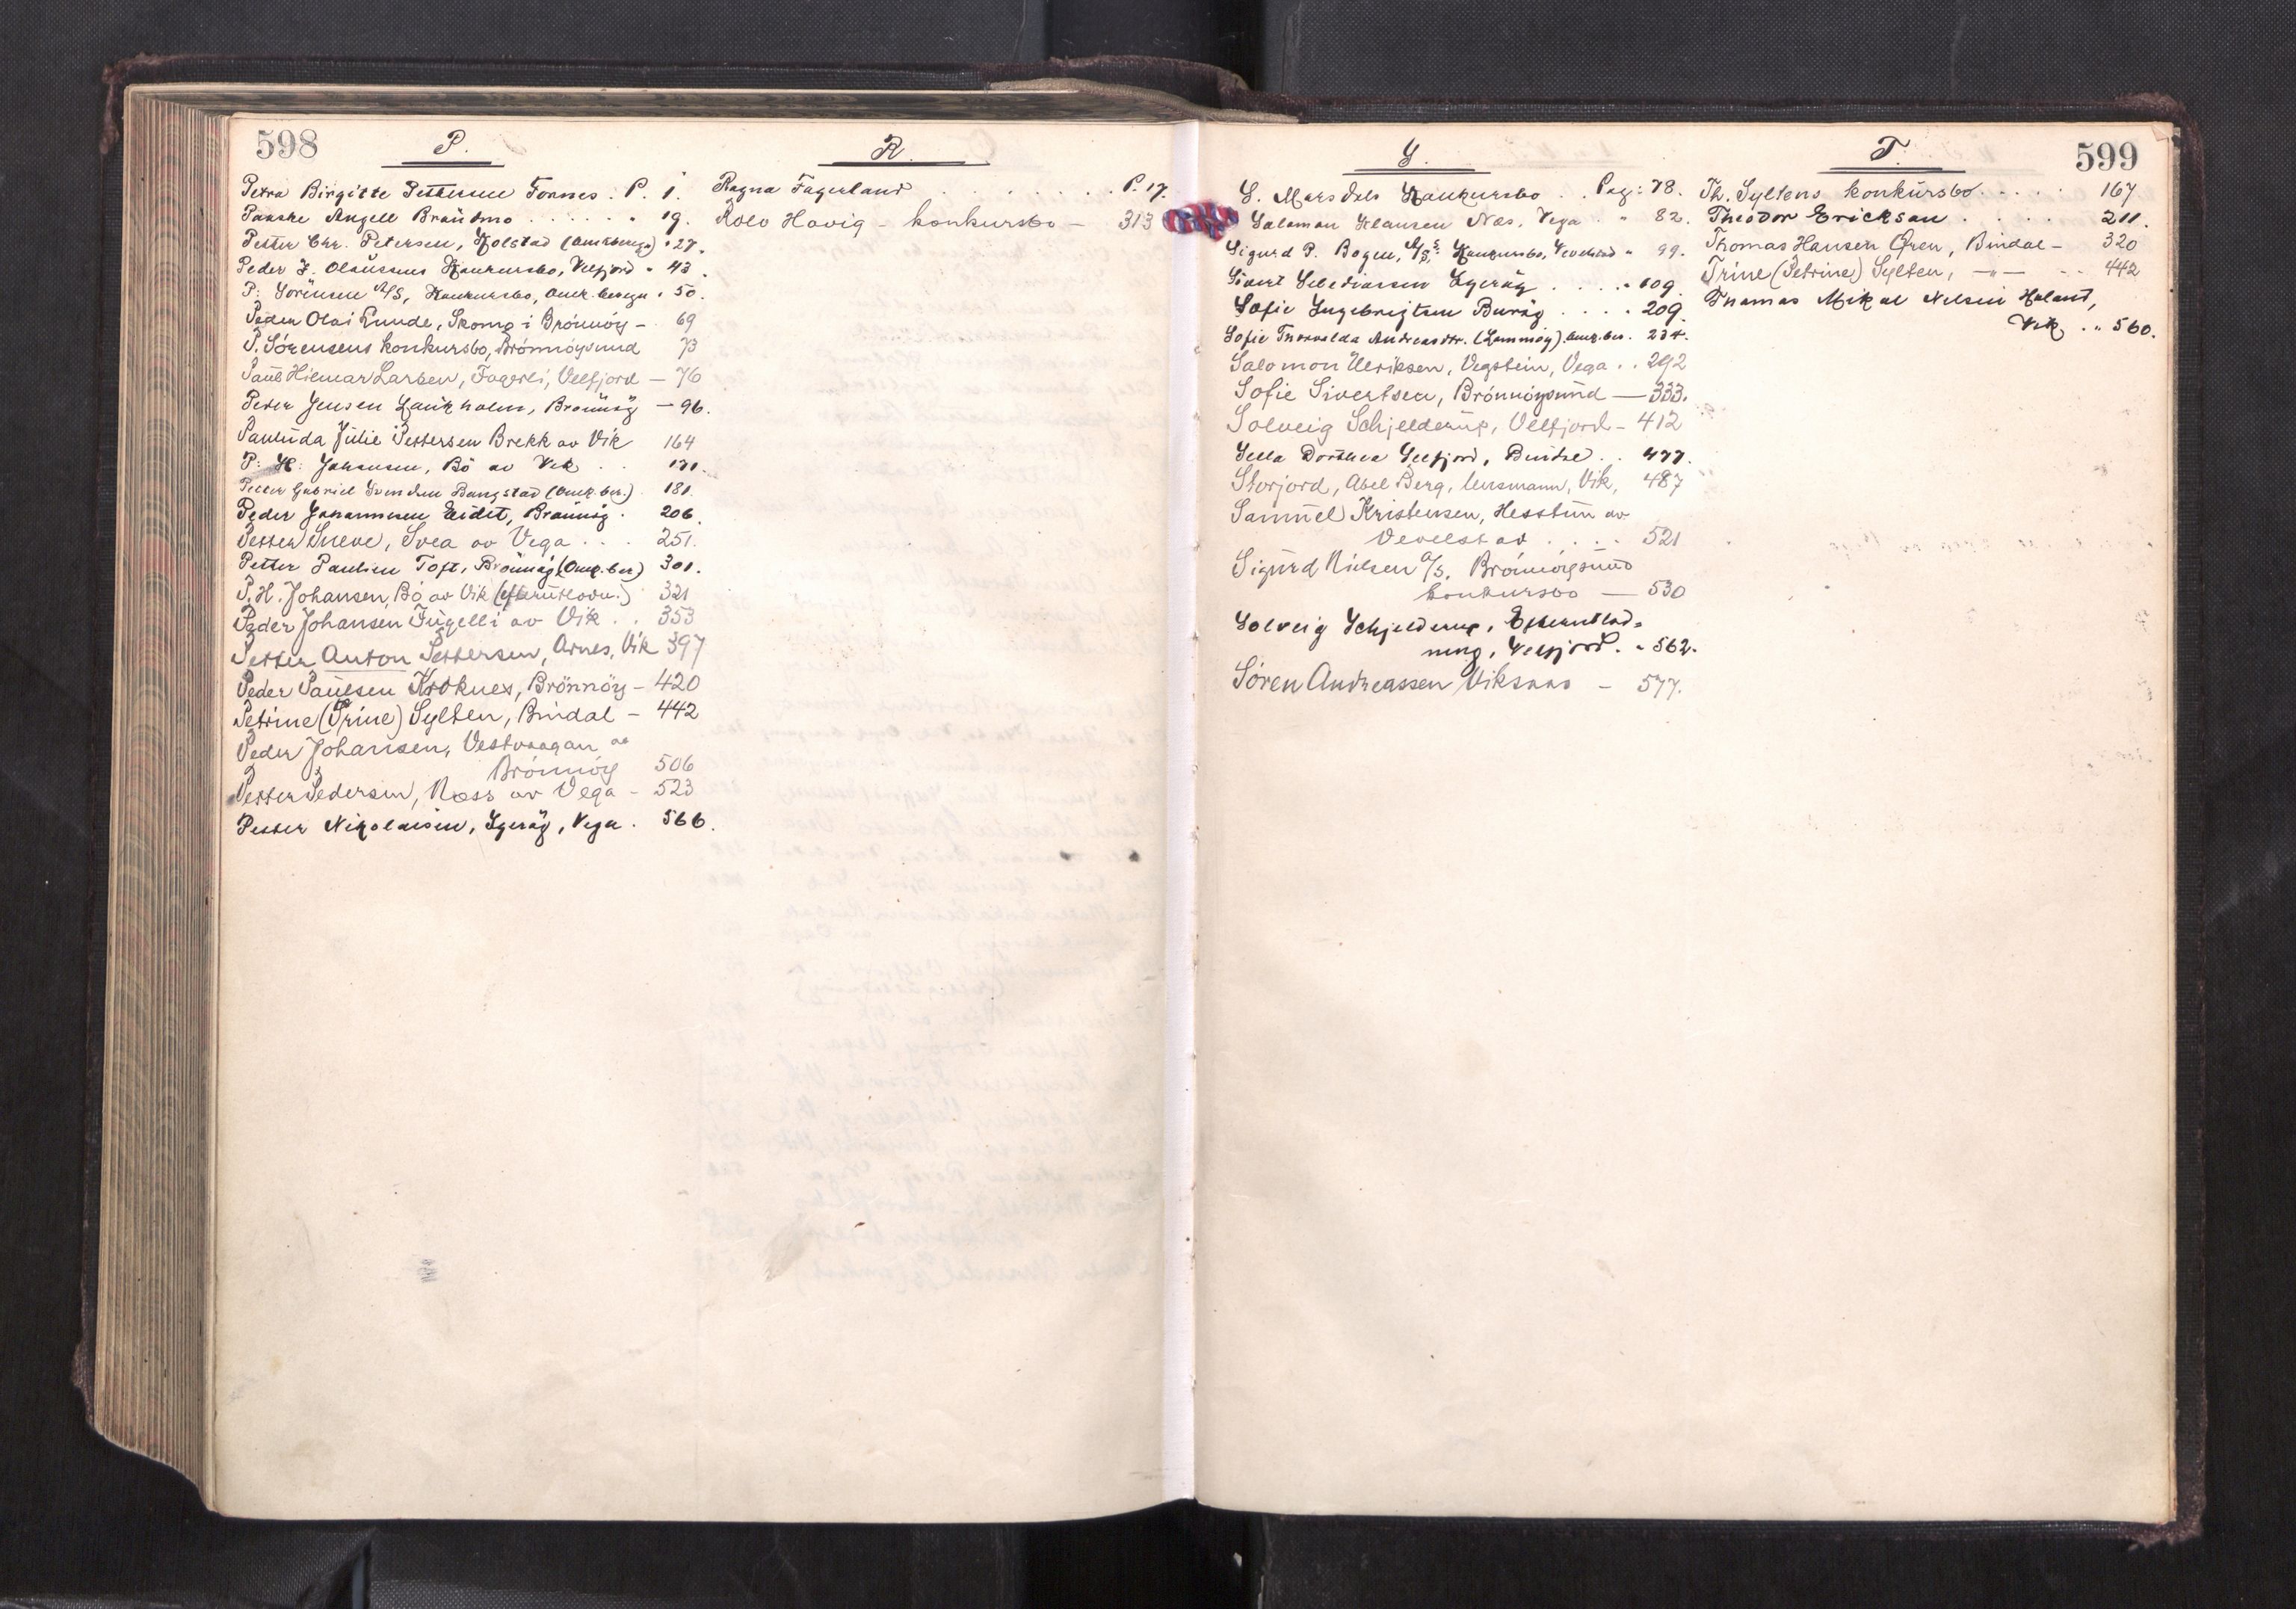 598
P.
Petra Birgitte Pettersen Tonnes. P. 1.
Angell Brautmo . . . . . . " 19.
Petter Chr. Petersen, Holstad (Omk.bereg.) " 27.
Peder J. Olaussens Konkursbo, Velfjord " 43.
P. Sörensen A/S, Konkursbo, Omk.beregn " 50.
Peder Olai Lunde, Skomo i Brönnöy – 69
P. Sørensens konkursbo, Brönnöysund 73
Paul Hilmar Larsen, Fagerli, Velfjord – 76
Peder Jensen Brönnöy – 96.
Paulida Julie Pettersen Brekk av Vik 164
P. H. Johansen, Bö av Vik . . 171.
Petter Gabriel Svendsen Bangstad (Omk.ber.) 181.
Peder Johannesen Eidet, Brönnöy . 206.
Petter Sneve, Svea av Vega . . . 251.
Petter Paulsen Toft, Brönnöy (Omk.ber) 301.
P. H. Johansen, Bö av Vik (efterutlodn.) 321
Peder Johansen Fugelli av Vik . . 353
Petter Anton Pettersen, Arnes, Vik 397
Peder Paulsen Kroknes, Brönnöy – 420
Petrine (Trine) Sylten, Bindal – 442
Peder Johansen, Vestvaagan av
Brönnöy 506
Petter Pedersen, Næss av Vega – 523
Petter Nikolaisen, Igeröy, Vega . 566.
R.
Ragna Fagerland . . . . . . . . P. 17.
Rolv Havig – konkursbo – 313
599
S.
S. Marsdels Konkursbo . . Pag: 78.
Salomon Klausen Næs, Vega . " 82.
Sigurd P. Bogen, A/S's Konkursbo, Vevelstad " 99.
Sivert Igeröy . . . . " 109.
Sofie Ingebrigtsen Buröy . . . . 209.
Sofie Thorvalda Andreasdtr. Omk.ber. 234.
Salomon Ulriksen, Vegstein, Vega . . 292
Sofie Sivertsen, Brönnöysund — 333.
Solveig Schjelderup, Velfjord – 412
Sella Dorthea . . 477.
Storjord, Abel Berg, lensmann, Vik, 487
Samuel Kristensen, Hesstun av
Vevelstad . . . . 521
Sigurd Nielsen A/S, Brönnöysund
konkursbo — 530
Solveig Schjelderup, Efterutlod-
ning, Velfjord. " 562.
Sören Andreassen Viksaas – 577.
T.
Th. Syltens konkursbo . . . . . 167
Theodor Erickson . . . . . 211.
Thomas Hansen Øren, Bindal – 320
Trine (Petrine) Sylten, —"— . . 442
Thomas Mikal Nelsen Holand,
Vik . " 560.